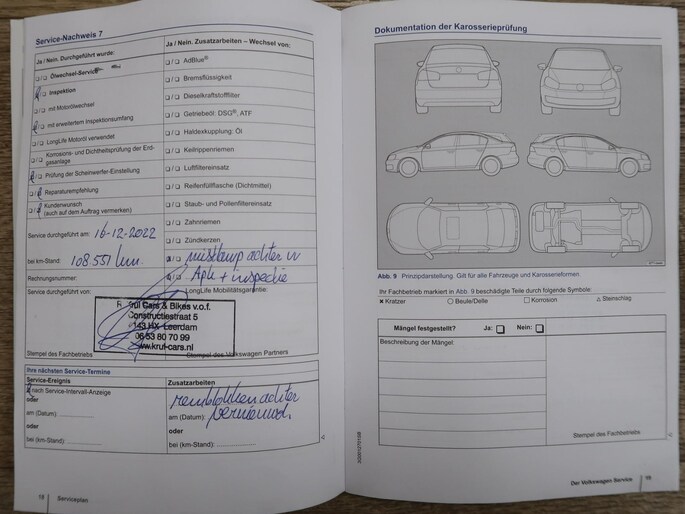 Service-Nachweis 7
Ja / Nein. Durchgeführt wurde:
Ölwechsel-Service
Inspektion
mit Motorölwechsel
mit erweitertem Inspektionsumfang
LongLife Motoröl verwendet
Korrosions- und Dichtheitsprüfung der Erdgasanlage
Prüfung der Scheinwerfer-Einstellung
Reparaturempfehlung
Kundenwunsch
(auch auf dem Auftrag vermerken)
Service durchgeführt am: 16-12-2022
bei km-Stand: 108 551 km.
Rechnungsnummer:
Service durchgeführt von:
Cars & Bikes v.o.f.
Constructiestraat 5
4143 HX Leerdam
06 53 80 70 99
www.kruf-cars.nl
Stempel des Fachbetriebs
Ja / Nein. Zusatzarbeiten – Wechsel von:
AdBlue®
Bremsflüssigkeit
Dieselkraftstofffilter
Getriebeöl: DSG®, ATF
Haldexkupplung: Öl
Keilrippenriemen
Luftfiltereinsatz
Reifenfüllflasche (Dichtmittel)
Staub- und Pollenfiltereinsatz
Zahnriemen
Zündkerzen
mistlamp achter
Apk + inspectie
LongLife Mobilitätsgarantie:
Stempel des Volkswagen Partners
Ihre nächsten Service-Termine
Service-Ereignis
nach Service-Intervall-Anzeige
oder
am (Datum):
oder
bei (km-Stand):
Zusatzarbeiten
remblokken achter
am (Datum): vernieuwd.
oder
bei (km-Stand):
18 Serviceplan
Dokumentation der Karosserieprüfung
Abb. 9 Prinzipdarstellung. Gilt für alle Fahrzeuge und Karosserieformen.
Ihr Fachbetrieb markiert in Abb. 9 beschädigte Teile durch folgende Symbole:
× Kratzer ○ Beule/Delle □ Korrosion △ Steinschlag
Mängel festgestellt? Ja: Nein:
Beschreibung der Mängel:
Stempel des Fachbetriebs
Der Volkswagen Service 19